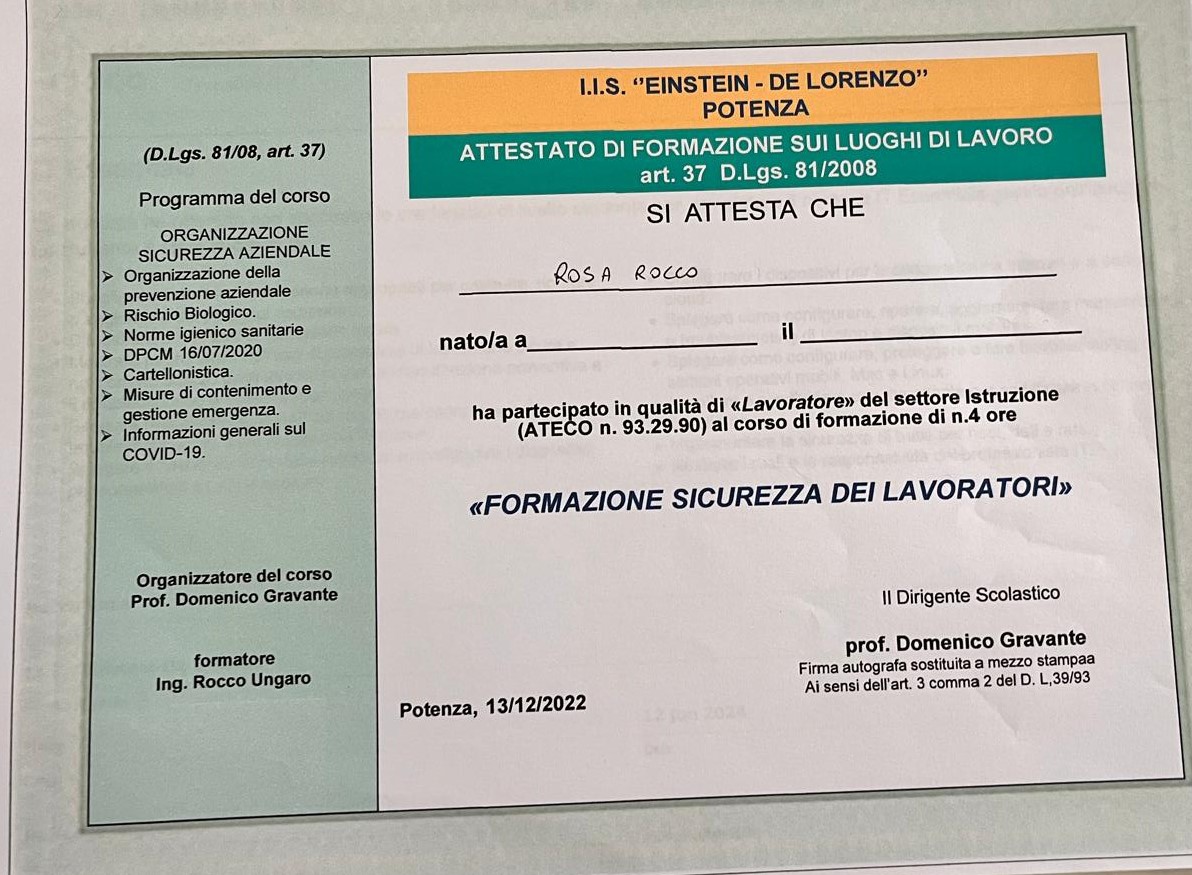 (D.Lgs. 81/08, art. 37)
Programma del corso
ORGANIZZAZIONE
SICUREZZA AZIENDALE
➢ Organizzazione della
prevenzione aziendale
➢ Rischio Biologico.
➢ Norme igienico sanitarie
➢ DPCM 16/07/2020
➢ Cartellonistica.
➢ Misure di contenimento e
gestione emergenza.
➢ Informazioni generali sul
COVID-19.
Organizzatore del corso
Prof. Domenico Gravante
formatore
Ing. Rocco Ungaro
I.I.S. ‘’EINSTEIN - DE LORENZO’’
POTENZA
ATTESTATO DI FORMAZIONE SUI LUOGHI DI LAVORO
art. 37 D.Lgs. 81/2008
SI ATTESTA CHE
ROSA ROCCO
nato/a a____________________ il ____________________
ha partecipato in qualità di «Lavoratore» del settore Istruzione
(ATECO n. 93.29.90) al corso di formazione di n.4 ore
«FORMAZIONE SICUREZZA DEI LAVORATORI»
Il Dirigente Scolastico
prof. Domenico Gravante
Firma autografa sostituita a mezzo stampaa
Ai sensi dell'art. 3 comma 2 del D. L,39/93
Potenza, 13/12/2022